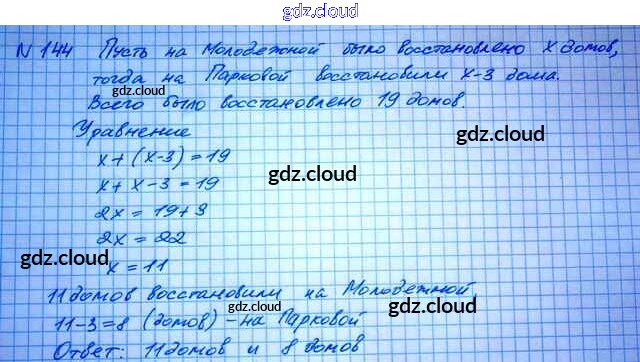 gdz.cloud
N 144 Пусть на Молодежной было восстановлено x домов,
тогда на Парковой восстановили x-3 дома.
gdz.cloud
Всего было восстановлено 19 домов.
Уравнение
gdz.cloud
x+(x-3)=19
gdz.cloud
x+x-3=19
2x = 19+3
gdz.cloud
2x = 22
gdz.cloud
x = 11
11 домов восстановили на Молодежной
gdz.cloud
gdz.cloud
11-3=8 (домов) - на Парковой
Ответ: 11 домов и 8 домов